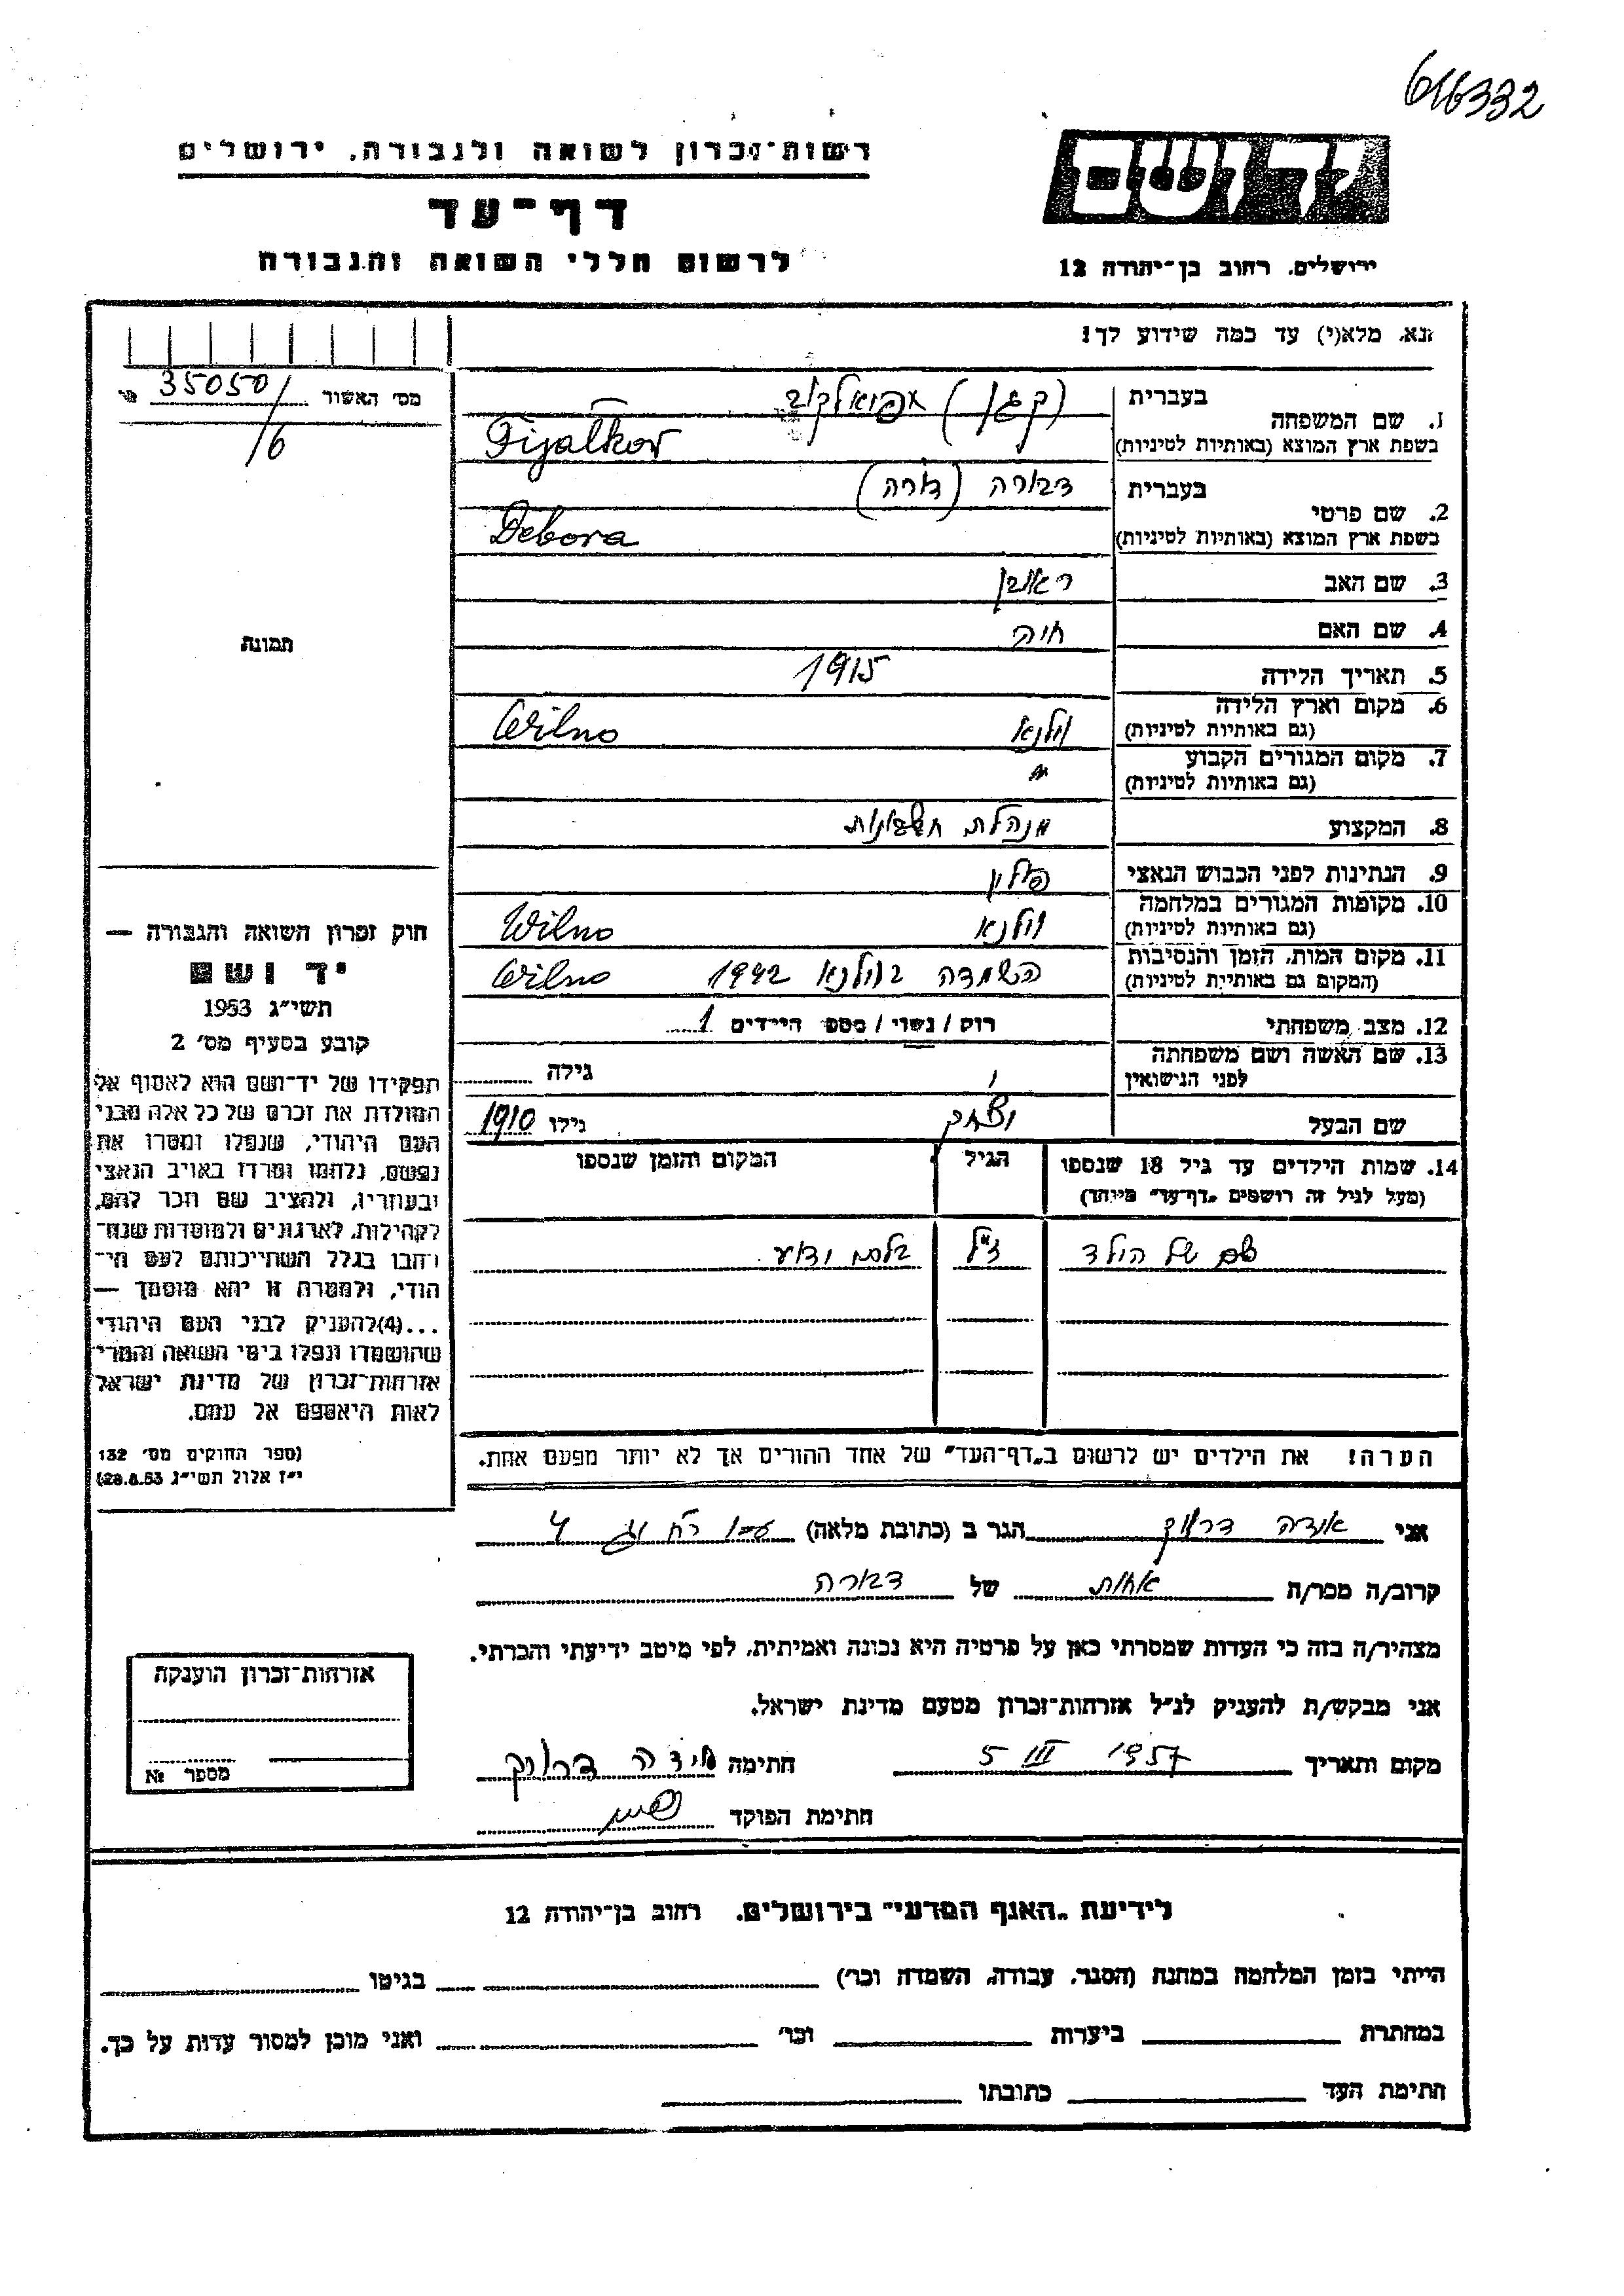 616332
רשות־זכרון לשואה ולגבורה, ירושלים
דף־עד
לרשום חללי השואה והגבורה
יד ושם
ירושלים, רחוב בן־יהודה 12
נא, מלא(י) עד כמה שידוע לך!
מס׳ האשור 35050/
/6
1. שם המשפחה בעברית (קגן)
בשפת ארץ המוצא (באותיות לטיניות) Fijalkov
2. שם פרטי בעברית דבורה (דורה)
בשפת ארץ המוצא (באותיות לטיניות) Debora
3. שם האב ראובן
4. שם האם חיה
5. תאריך הלידה 1915
6. מקום וארץ הלידה (גם באותיות לטיניות) וילנא Wilno
7. מקום המגורים הקבוע (גם באותיות לטיניות) "
8. המקצוע מנהלת חשבונות
9. הנתינות לפני הכבוש הנאצי פולין
10. מקומות המגורים במלחמה (גם באותיות לטיניות) וילנא Wilno
11. מקום המות, הזמן והנסיבות (המקום גם באותיות לטיניות) השמדה בוילנא 1942 Wilno
12. מצב משפחתי רוק/נשוי/מספר הילדים 1
13. שם האשה ושם משפחתה לפני הנישואין גילה
שם הבעל יצחק גילו 1910
14. שמות הילדים עד גיל 18 שנספו
(מעל לגיל זה רושמים „דף־עד״ מיוחד)
הגיל
המקום והזמן שנספו
שם של הילד בלתי ידוע
הערה! את הילדים יש לרשום ב„דף־העד״ של אחד ההורים אך לא יותר מפעם אחת.
תמונה
חוק זכרון השואה והגבורה —
יד ושם
תשי״ג 1953
קובע בסעיף מס׳ 2
תפקידו של יד־ושם הוא לאסוף אל
המולדת את זכרם של כל אלה מבני
העם היהודי, שנפלו ומסרו את
נפשם, נלחמו ומרדו באויב הנאצי
ובעוזריו, ולהציב שם וזכר להם,
לקהילות, לארגונים ולמוסדות שנח־
רבו בגלל השתייכותם לעם הי־
הודי, ולמטרה זו יהא מוסמך —
...(4)להעניק לבני העם היהודי
שהושמדו ונפלו בימי השואה והמרי
אזרחות־זכרון של מדינת ישראל
לאות היאספם אל עמם.
(ספר החוקים מס׳ 132
י״ז אלול תשי״ג 28.8.53)
אני הגר ב (כתובת מלאה)
קרוב/ה מכר/ה אחות של דבורה
מצהיר/ה בזה כי העדות שמסרתי כאן על פרטיה היא נכונה ואמיתית, לפי מיטב ידיעתי והכרתי.
אני מבקש/ת להעניק לנ״ל אזרחות־זכרון מטעם מדינת ישראל.
מקום ותאריך 5 III 1957 חתימה
חתימת הפוקד
אזרחות־זכרון הוענקה
מספר №
לידיעת „האגף המדעי״ בירושלים, רחוב בן־יהודה 12
הייתי בזמן המלחמה במחנה (הסגר, עבודה, השמדה וכו׳) בגיטו
במחתרת ביערות וכו׳ ואני מוכן למסור עדות על כך.
חתימת העד כתובתו